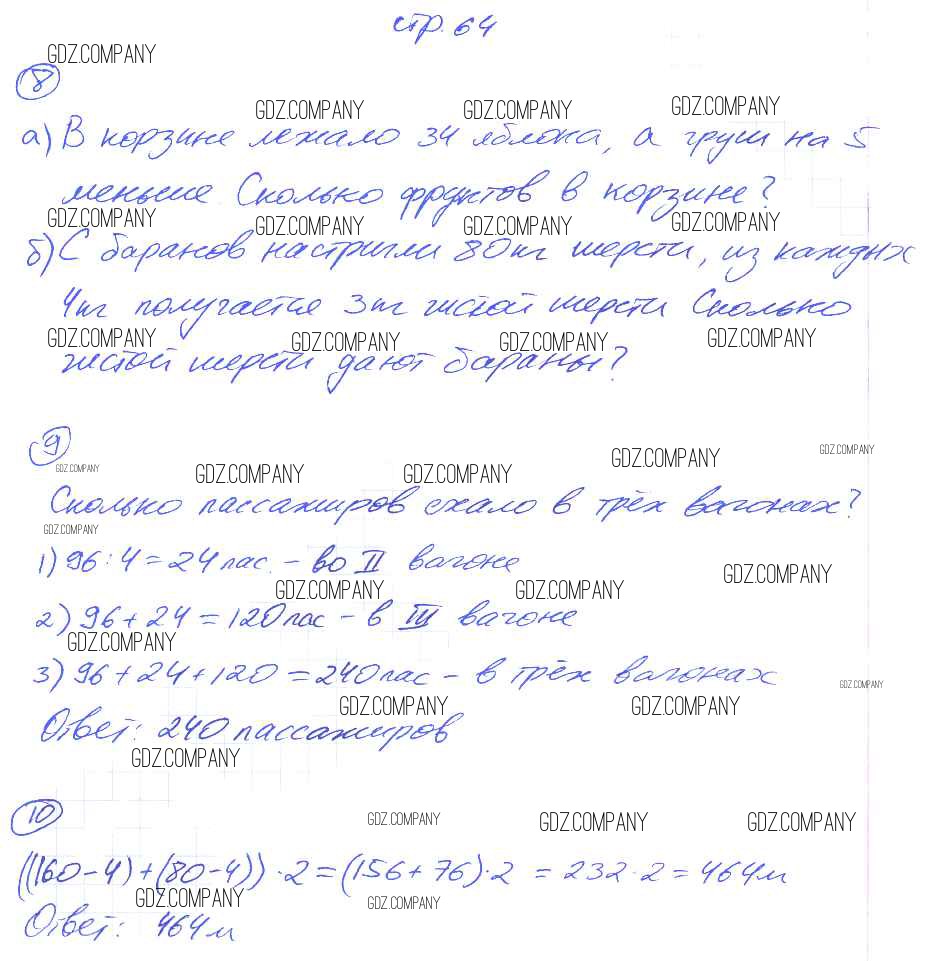 стр. 64
GDZ.COMPANY
8
GDZ.COMPANY GDZ.COMPANY GDZ.COMPANY
а) В корзине лежало 34 яблока, а груш на 5
меньше. Сколько фруктов в корзине?
GDZ.COMPANY GDZ.COMPANY GDZ.COMPANY GDZ.COMPANY
б) С баранов настригли 80 кг шерсти, из каждых
4 кг получается 3 кг чистой шерсти Сколько
GDZ.COMPANY GDZ.COMPANY GDZ.COMPANY GDZ.COMPANY
чистой шерсти дают бараны?
9
GDZ.COMPANY GDZ.COMPANY GDZ.COMPANY GDZ.COMPANY GDZ.COMPANY
Сколько пассажиров ехало в трёх вагонах?
GDZ.COMPANY
1) 96 : 4 = 24 пас. – во II вагоне
GDZ.COMPANY GDZ.COMPANY GDZ.COMPANY
2) 96 + 24 = 120 пас – в III вагоне
GDZ.COMPANY
3) 96 + 24 + 120 = 240 пас – в трёх вагонах
GDZ.COMPANY GDZ.COMPANY GDZ.COMPANY
Ответ: 240 пассажиров
GDZ.COMPANY
10
GDZ.COMPANY GDZ.COMPANY GDZ.COMPANY
((160 – 4) + (80 – 4)) · 2 = (156 + 76) · 2 = 232 · 2 = 464 м
GDZ.COMPANY GDZ.COMPANY
Ответ: 464 м